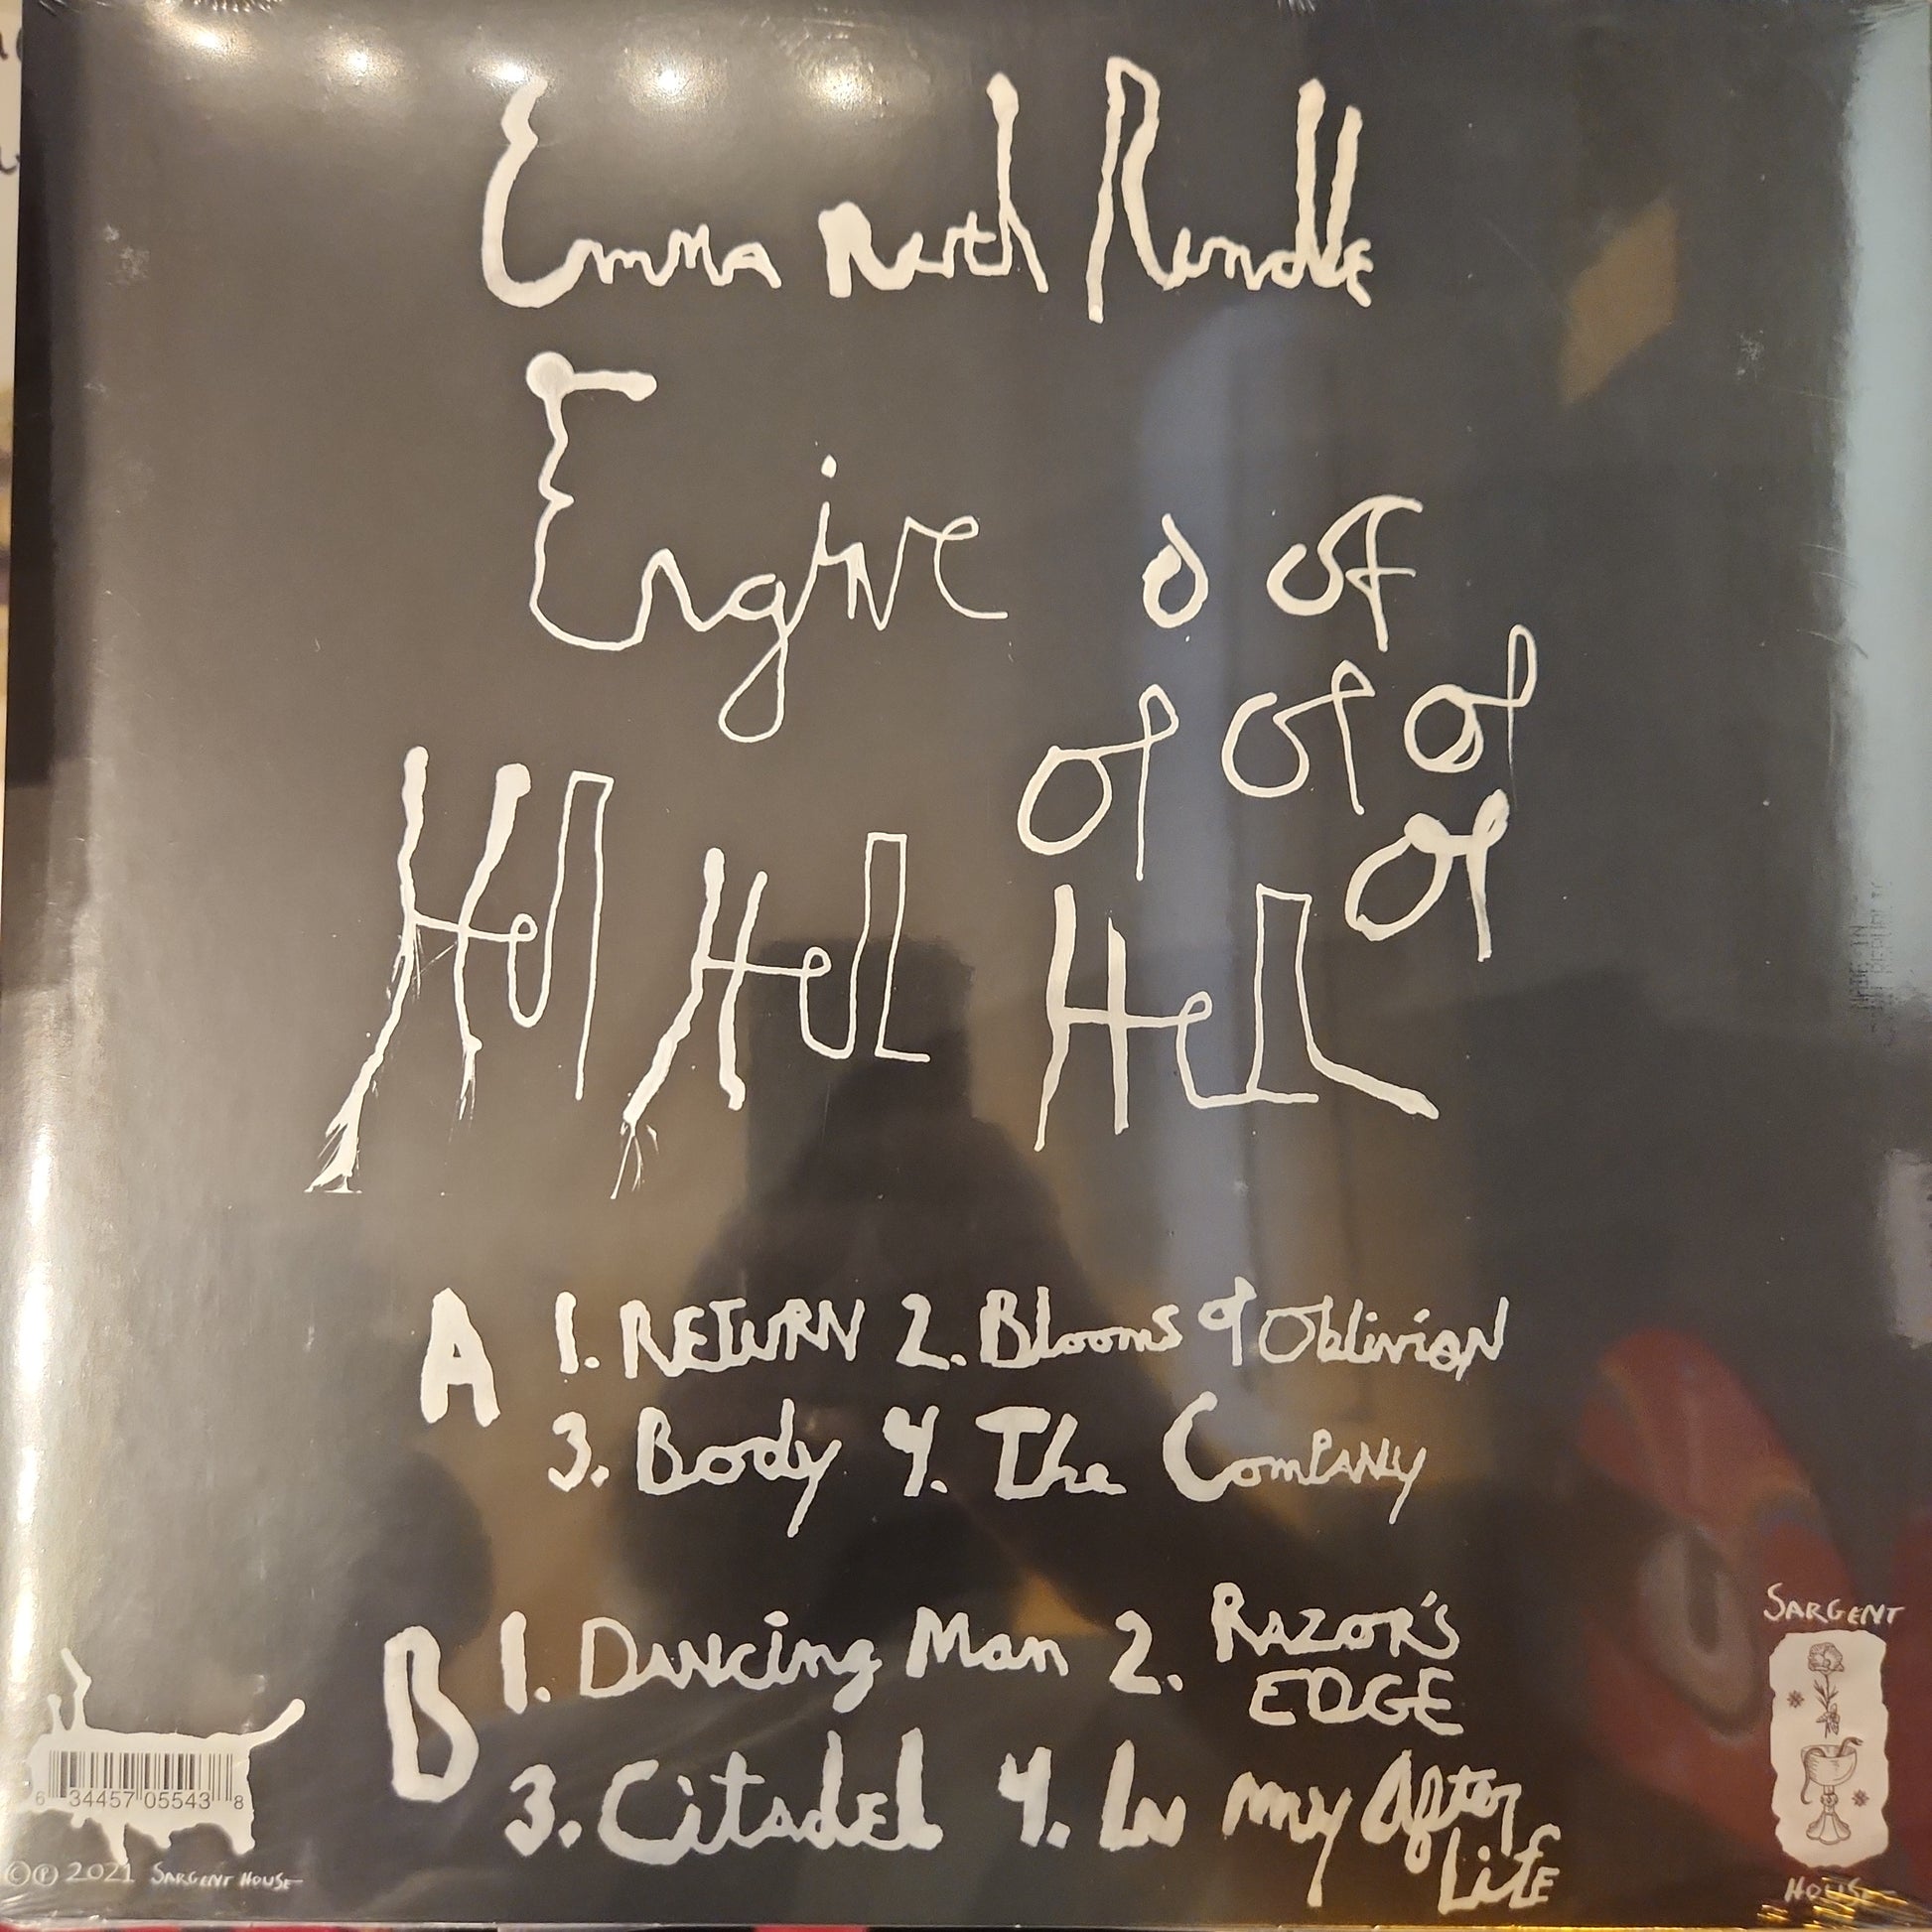 Emma Ruth Rundle
Engine o of
of of of
of
Hel Hel Hell
A 1. RETURN 2. Blooms of Oblivion
3. Body 4. The Company
B 1. Dancing Man 2. RAZOR'S
EDGE
3. Citadel 4. In my After
Life
6 34457 05543 8
©℗ 2021 SARGENT HOUSE
SARGENT
HOUSE